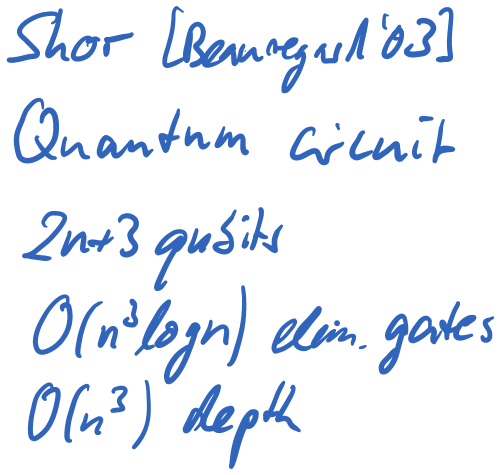 Shor [Beauregard '03]
Quantum circuit
2n+3 qubits
O(n³logn) elem. gates
O(n³) depth